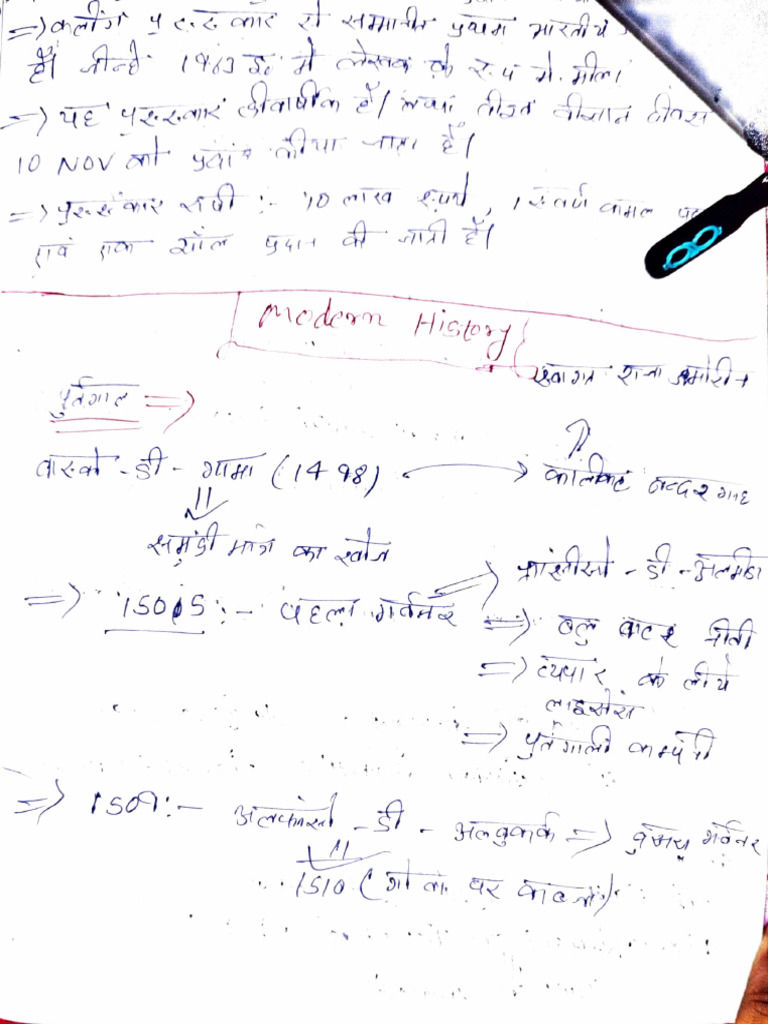 => कलींग पुरुस्कार से सम्मानीत प्रथम भारतीय
हैं। जीन्हें 1963 ई० में लेखक के रूप में मीला
=> यह पुरुस्कार द्वीवार्षीक हैं। तीज्ञान दीवस
10 NOV को प्रदान कीया जाता हैं।
=> पुरुस्कार राशी :- 10 लाख रूपये, 1 स्वर्ण कमल
एवं एक शॉल प्रदान की जाती हैं।
Modern History
स्वागत राजा जमोरीन
पुर्तगाल =>
वास्को - डी - गामा (1498) → कालीकट बन्दरगाह
समुंद्री मार्ग का खोज
फ्रांसीस्को - डी - अलमीडा
=> 1505 :- पहला गर्वनर => ब्लु वाटर नीती
=> व्यपार के लीये
लाइसेंस
=> पुर्तगाली कम्पनी
=> 1509 :- अलफांसो - डी - अल्बुकर्क => दुसरा गर्वनर
1510 (गोवा पर कब्जा)